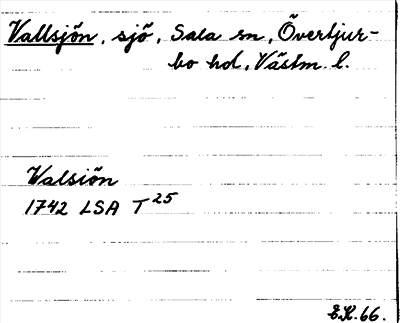 Vallsjön, sjö, Sala sn, Övertjur-
bo hd, Västm. l.
Walsiön
1742 LSA T25
E.K. 66.